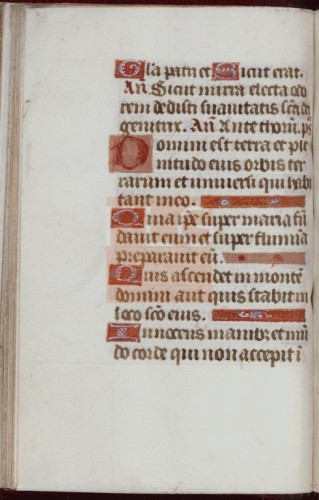 Gl̄a patri et Sicut erat.
An̄. Sicut mirra electa odo
rem dedisti suauitatis sc̄a dei
genitrix. An̄. Ante thorū. ps̄
Domini est terra et ple
nitudo eius orbis ter
rarum et uniuersi qui habi
tant in eo.
Quia ip̄e super maria fū
dauit eum et super flumīa
preparauit eū.
Quis ascendet in montē
domini aut quis stabit in
loco sc̄o eius.
Innocens manibꝫ et mū
do corde qui non accepit ī